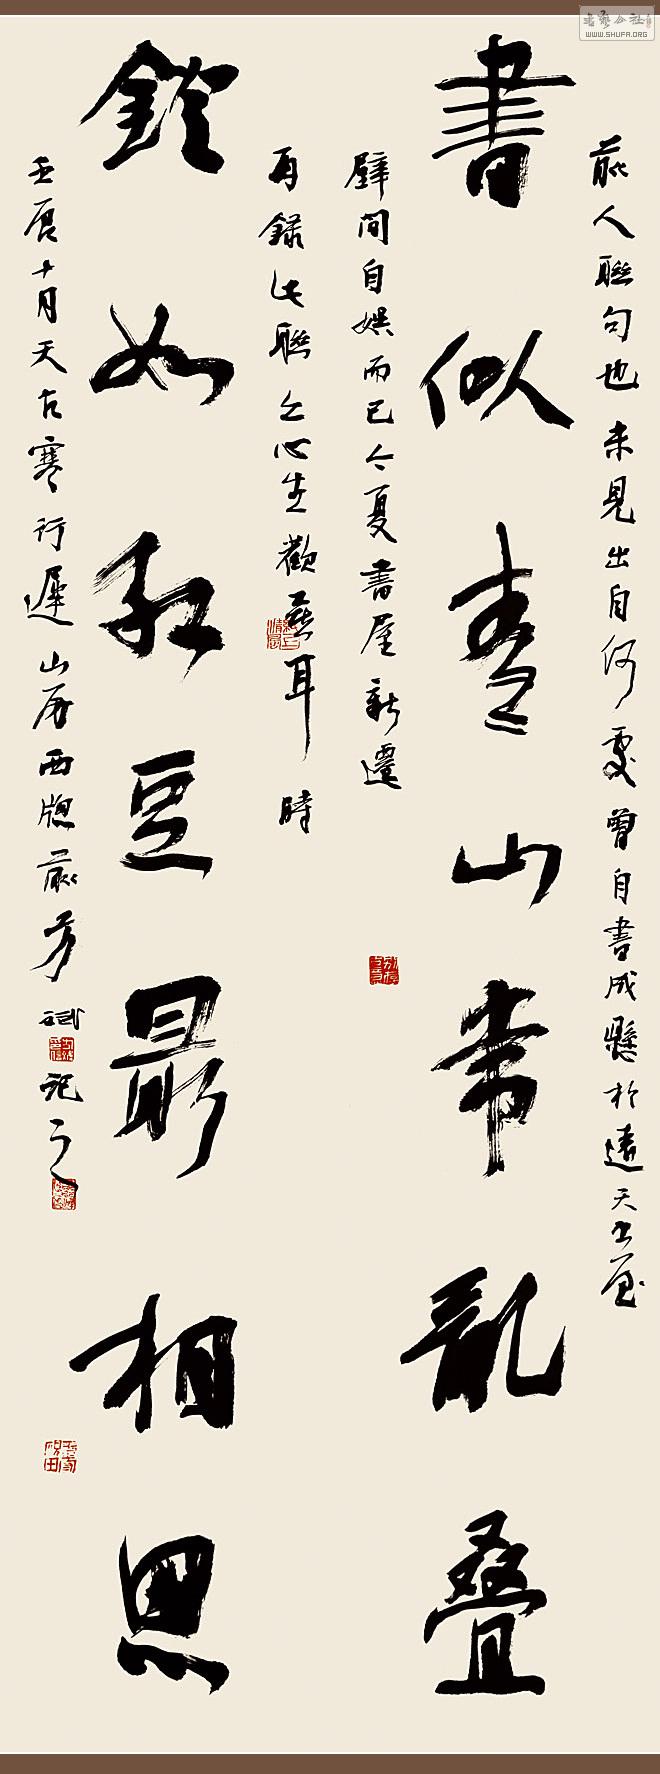 書似青山常亂疊
前人聯句也未見出自何處曾自書成懸於遠天書屋
壁間自娛而已今夏書屋新遷
燈如紅豆最相思
再錄此聯令心生歡喜耳時
壬辰十月天方寒行遲山居西牕前芳斌記之
WWW.SHUFA.ORG